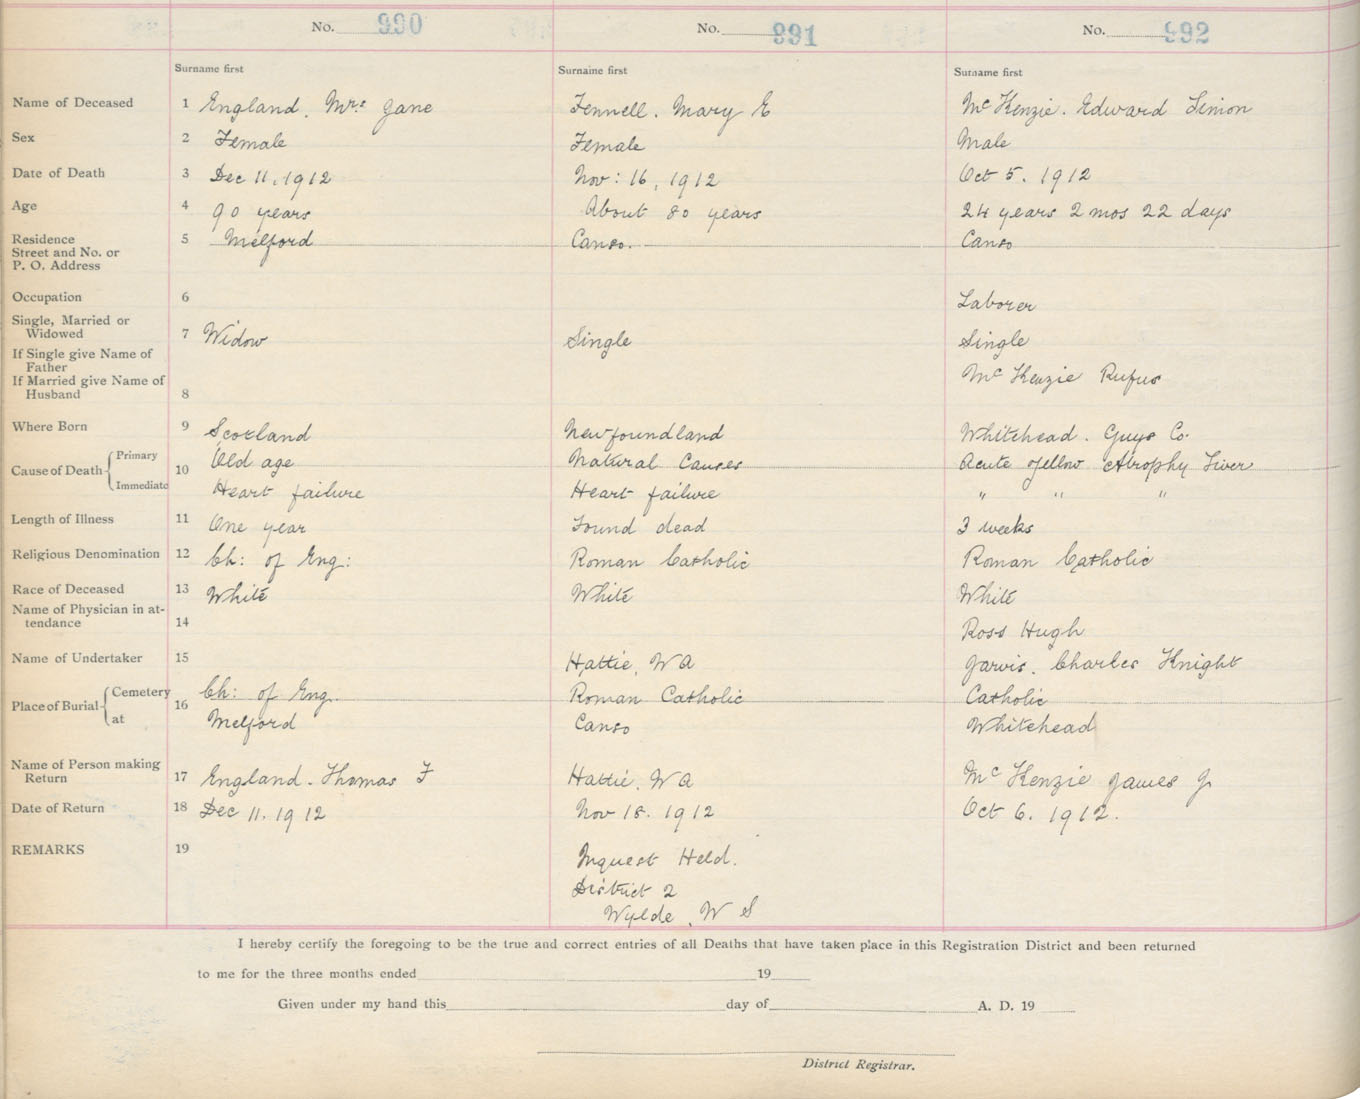 No. 990 No. 991 No. 992
Surname first Surname first Surname first
Name of Deceased 1 England, Mrs Jane Fennell. Mary E McKenzie. Edward Simon
Sex 2 Female Female Male
Date of Death 3 Dec 11, 1912 Nov: 16, 1912 Oct 5. 1912
Age 4 90 years About 80 years 24 years 2 mos 22 days
Residence 5 Melford Canso. Canso
Street and No. or
P. O. Address
Occupation 6 Laborer
Single, Married or
Widowed 7 Widow Single Single
If Single give Name of
Father McKenzie Rufus
If Married give Name of
Husband 8
Where Born 9 Scotland Newfoundland Whitehead. Guys Co.
Cause of Death 10 Primary Old age Natural Causes Acute yellow Atrophy Liver
Immediate Heart failure Heart failure " " "
Length of Illness 11 One year Found dead 3 weeks
Religious Denomination 12 Ch: of Eng: Roman Catholic Roman Catholic
Race of Deceased 13 White White White
Name of Physician in at-
tendance 14 Ross Hugh
Name of Undertaker 15 Hattie, W A Jarvis. Charles Knight
Place of Burial 16 Cemetery Ch: of Eng. Roman Catholic Catholic
at Melford Canso Whitehead
Name of Person making
Return 17 England. Thomas F Hattie, W A McKenzie James J.
Date of Return 18 Dec 11. 1912 Nov 18. 1912 Oct 6. 1912.
REMARKS 19 Inquest Held.
District 2
Wylde, W S
I hereby certify the foregoing to be the true and correct entries of all Deaths that have taken place in this Registration District and been returned
to me for the three months ended 19
Given under my hand this day of A. D. 19
District Registrar.